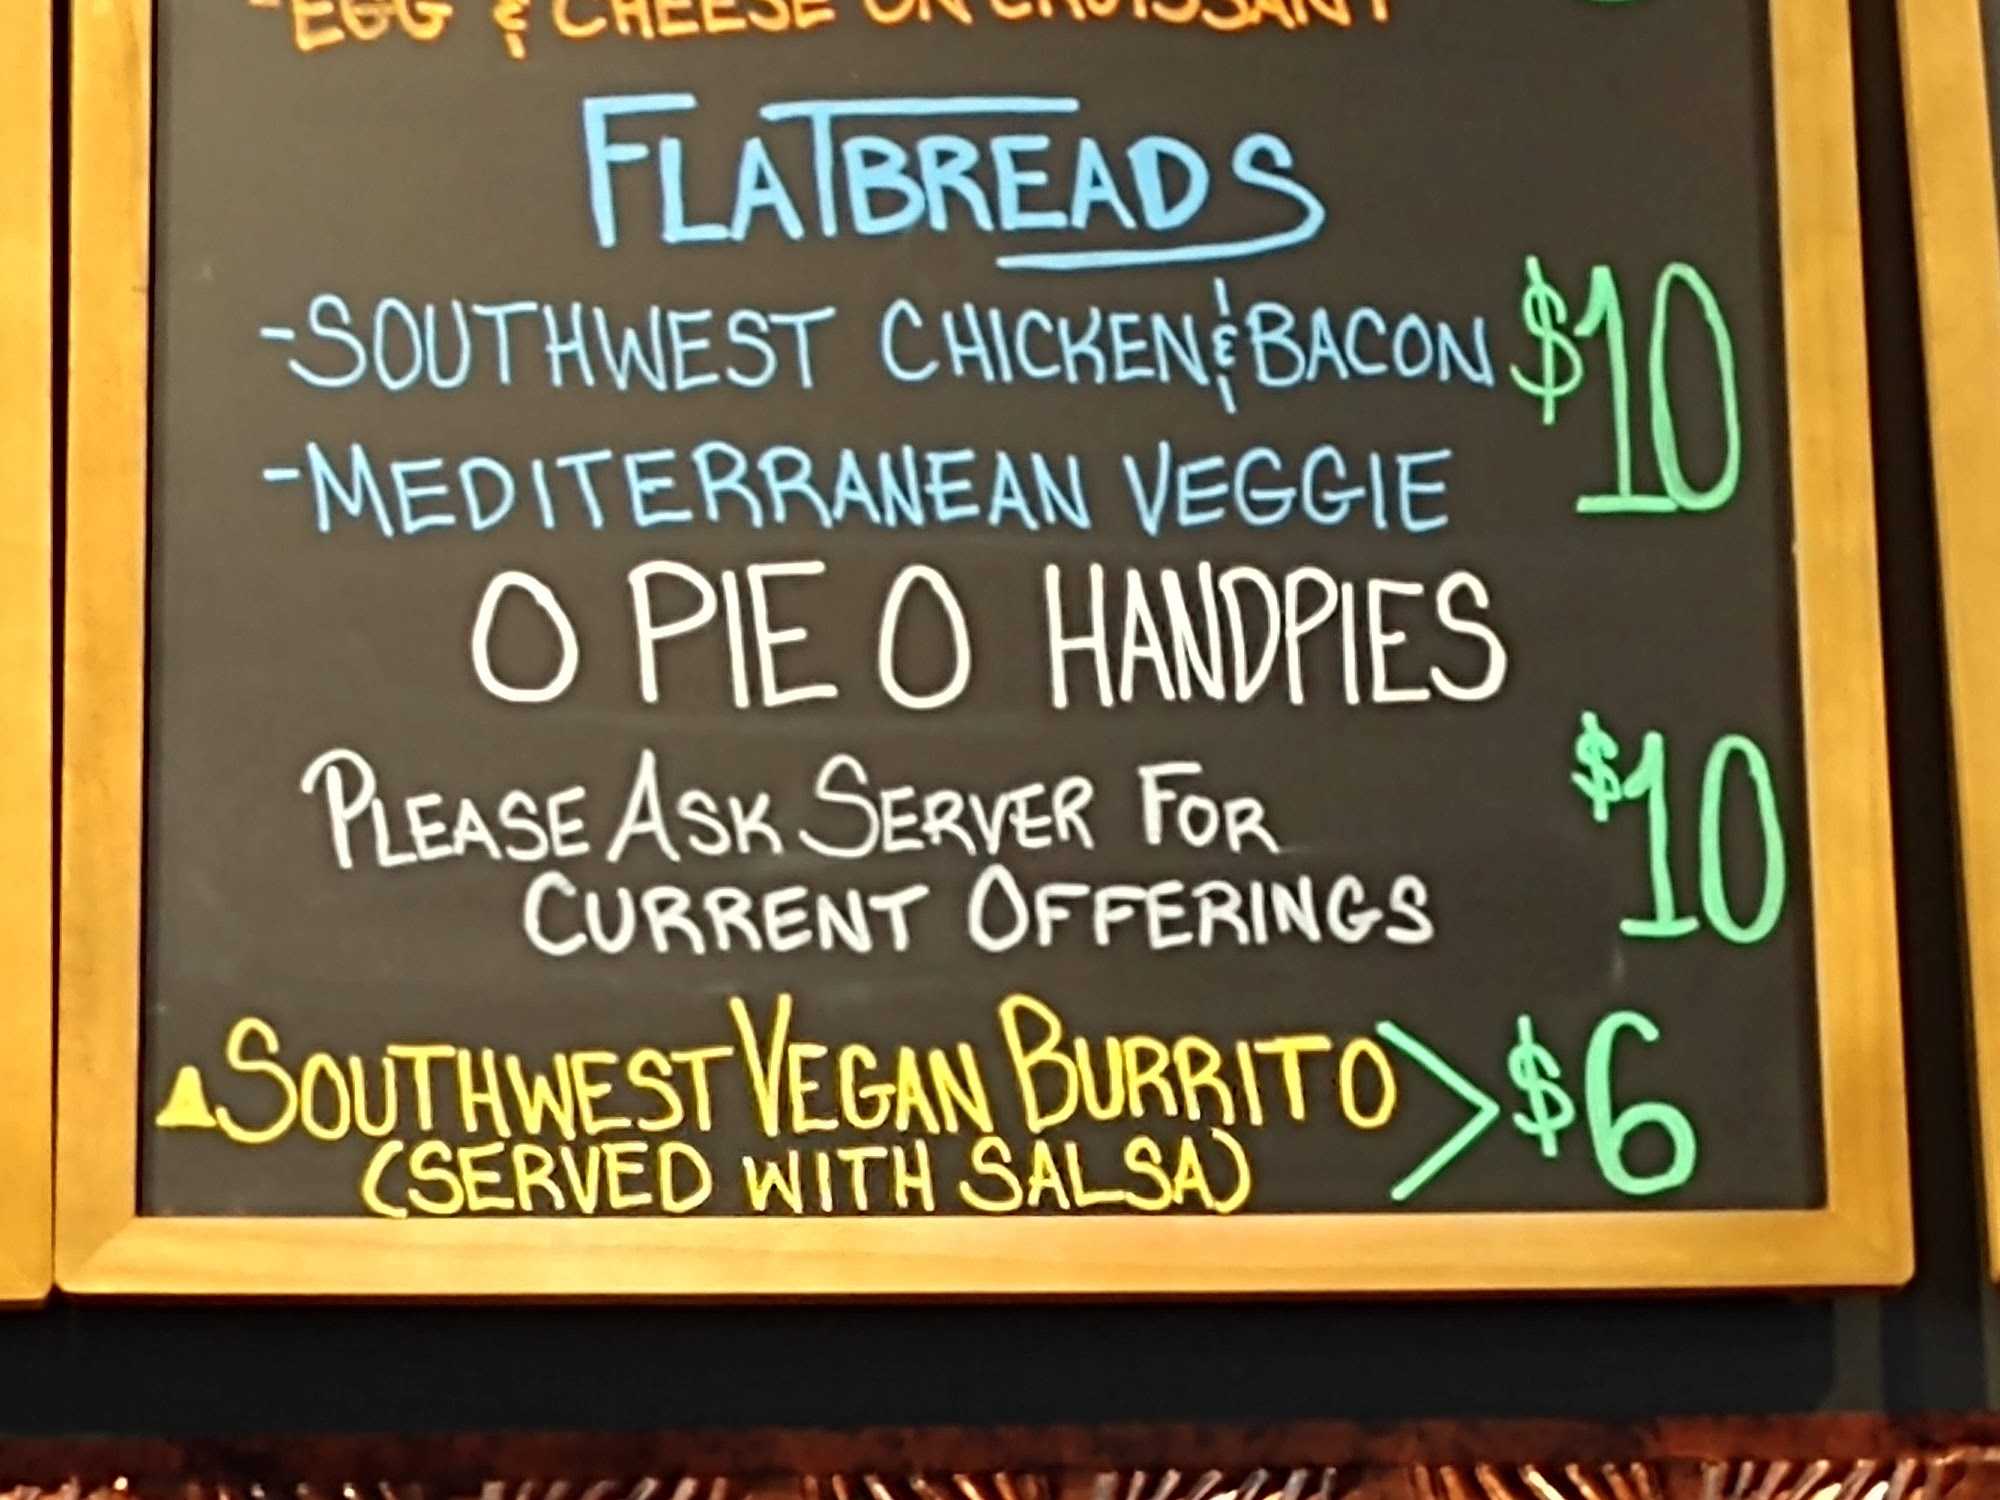 -EGG & CHEESE ON CROISSANT
FLATBREADS
-SOUTHWEST CHICKEN & BACON $10
-MEDITERRANEAN VEGGIE
O PIE O HANDPIES
PLEASE ASK SERVER FOR $10
CURRENT OFFERINGS
▲SOUTHWEST VEGAN BURRITO > $6
(SERVED WITH SALSA)